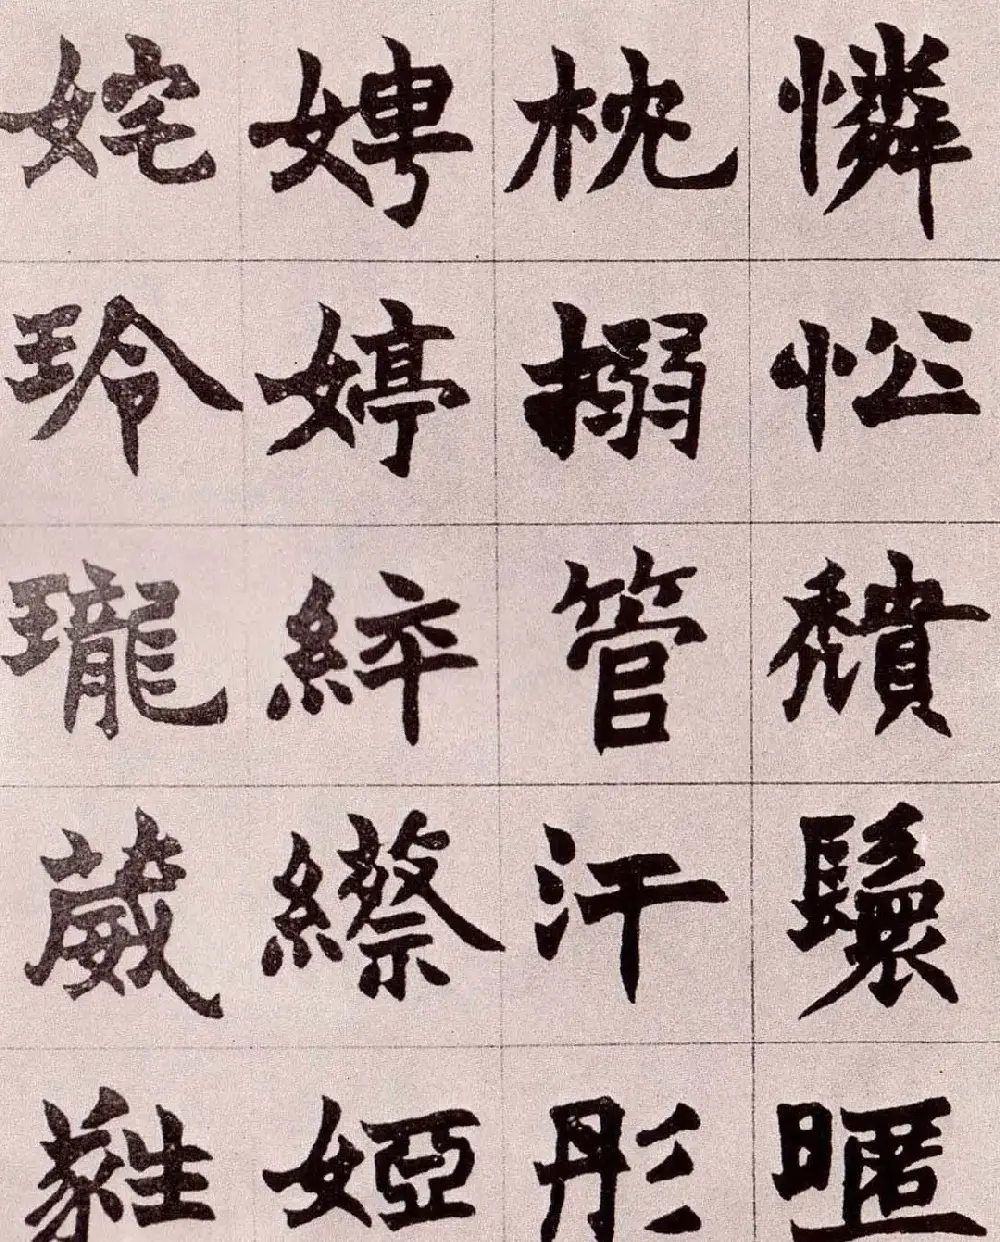 憐忪穨鬟暱
枕搦管汗彤
娉婷綷縩婭
姹玲瓏葳蕤